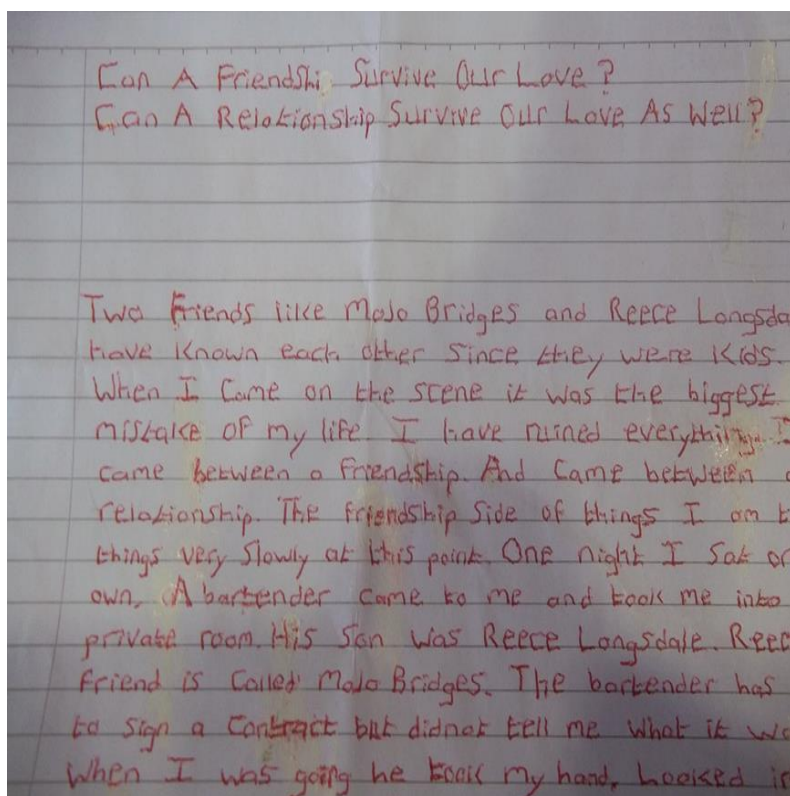 Can A Friendshi Survive Our Love?
Can A Relationship Survive Our Love As Well?
Two Friends like MoJo Bridges and Reece Longsda
have known each other since they were kids.
When I Came on the scene it was the biggest
mistake of my life. I have ruined everything. I
came between a friendship. And Came between a
relationship. The friendship Side of things I am t
things very Slowly at this point. One night I Sat on
own. A bartender came to me and took me into
private room. His Son was Reece Longsdale. Reec
Friend is Called MoJo Bridges. The bartender has
to Sign a Contract but didnot tell me What it wa
When I was going he took my hand, Looked in